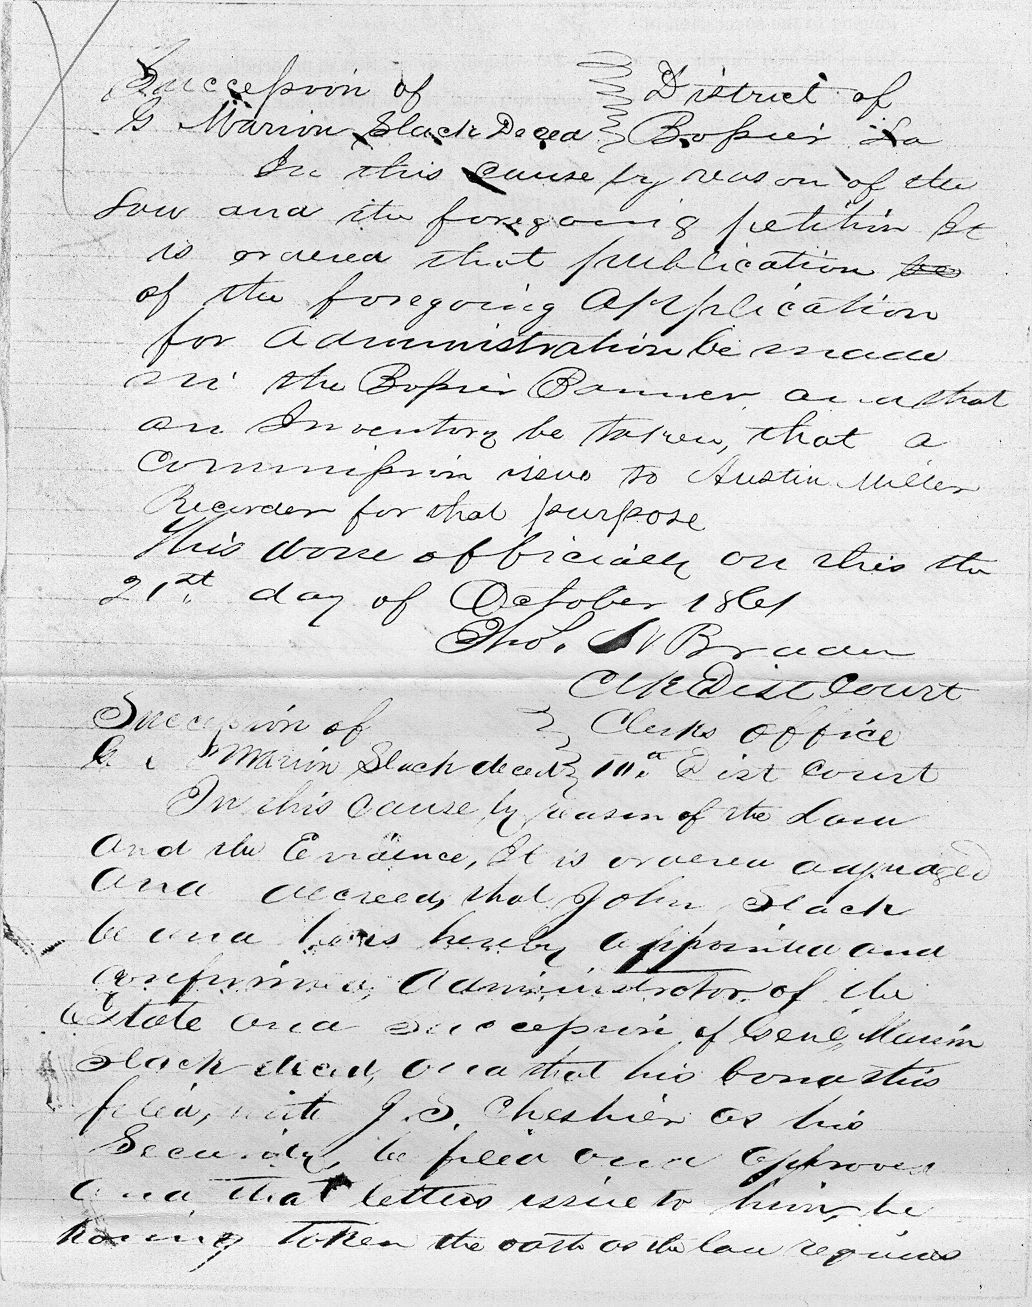 Succession of District of
G Marion Slack Deced Bossier La
In this cause by reason of the
Law and the foregoing petition It
is ordered that publication be
of the foregoing Application
for Administration be made
in the Bossier Banner and that
an Inventory be taken, that a
Commission issue to Austin Miller
Recorder for that purpose
This done officially on this the
21st day of October 1861
Thos. W
Clk Dist Court
Succession of Clerks office
G Marion Slack deced 10th Dist Court
In this cause by reason of the Law
and the Evidence, It is ordered adjudged
and decreed, that John Slack
be and is hereby appointed and
confirmed, Administrator of the
Estate and Succession of Marion
Slack deced, and that his bond this
filed, with J. S. Cheshier as his
Security, be filed and approved
and that letters issue to him, he
having taken the oath as the law requires